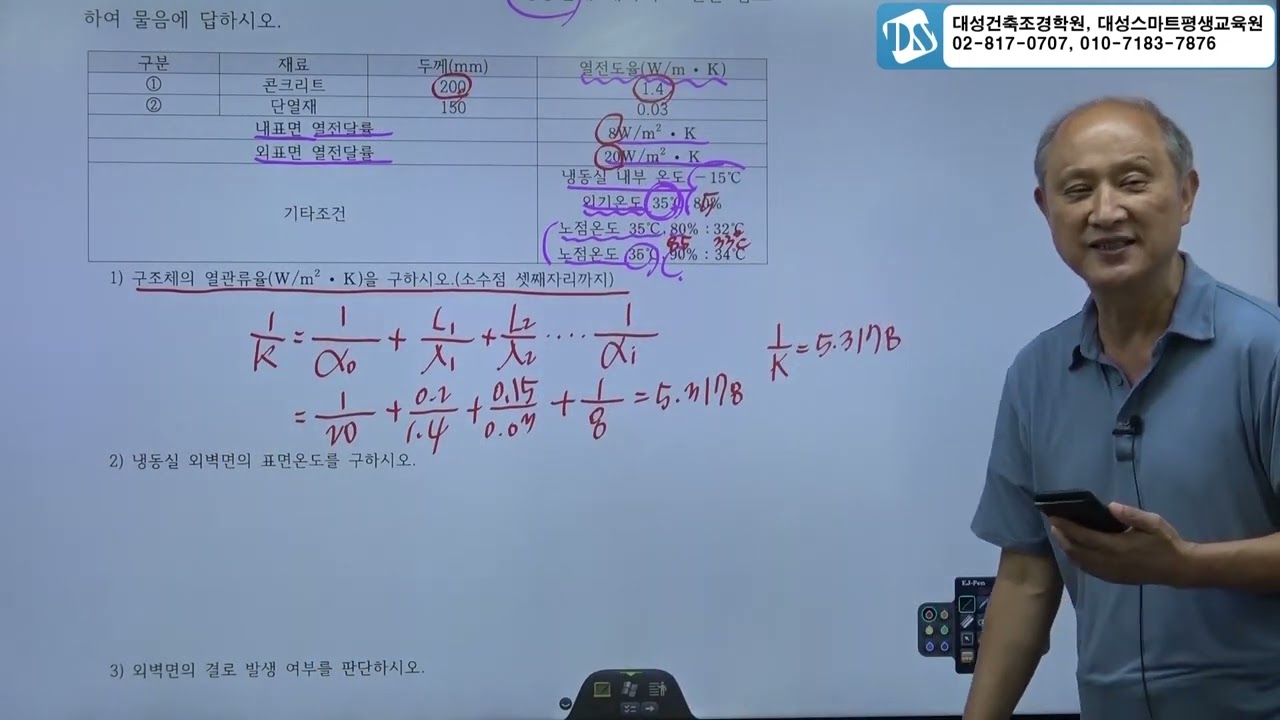 하여 물음에 답하시오.
대성건축조경학원, 대성스마트평생교육원
02-817-0707, 010-7183-7876
DS
구분 재료 두께(mm) 열전도율(W/m·K)
① 콘크리트 200 1.4
② 단열재 150 0.03
내표면 열전달률 8W/m²·K
외표면 열전달률 20W/m²·K
기타조건
냉동실 내부 온도 -15℃
외기온도 35℃
노점온도 35℃, 80% : 32℃
85 33℃
노점온도 35℃, 90% : 34℃
1) 구조체의 열관류율(W/m²·K)을 구하시오.(소수점 셋째자리까지)
1/K = 1/α₀ + L₁/λ₁ + L₂/λ₂ ···· 1/αi
1/K = 5.3178
= 1/20 + 0.2/1.4 + 0.15/0.03 + 1/8 = 5.3178
2) 냉동실 외벽면의 표면온도를 구하시오.
EJ-Pen
3) 외벽면의 결로 발생 여부를 판단하시오.